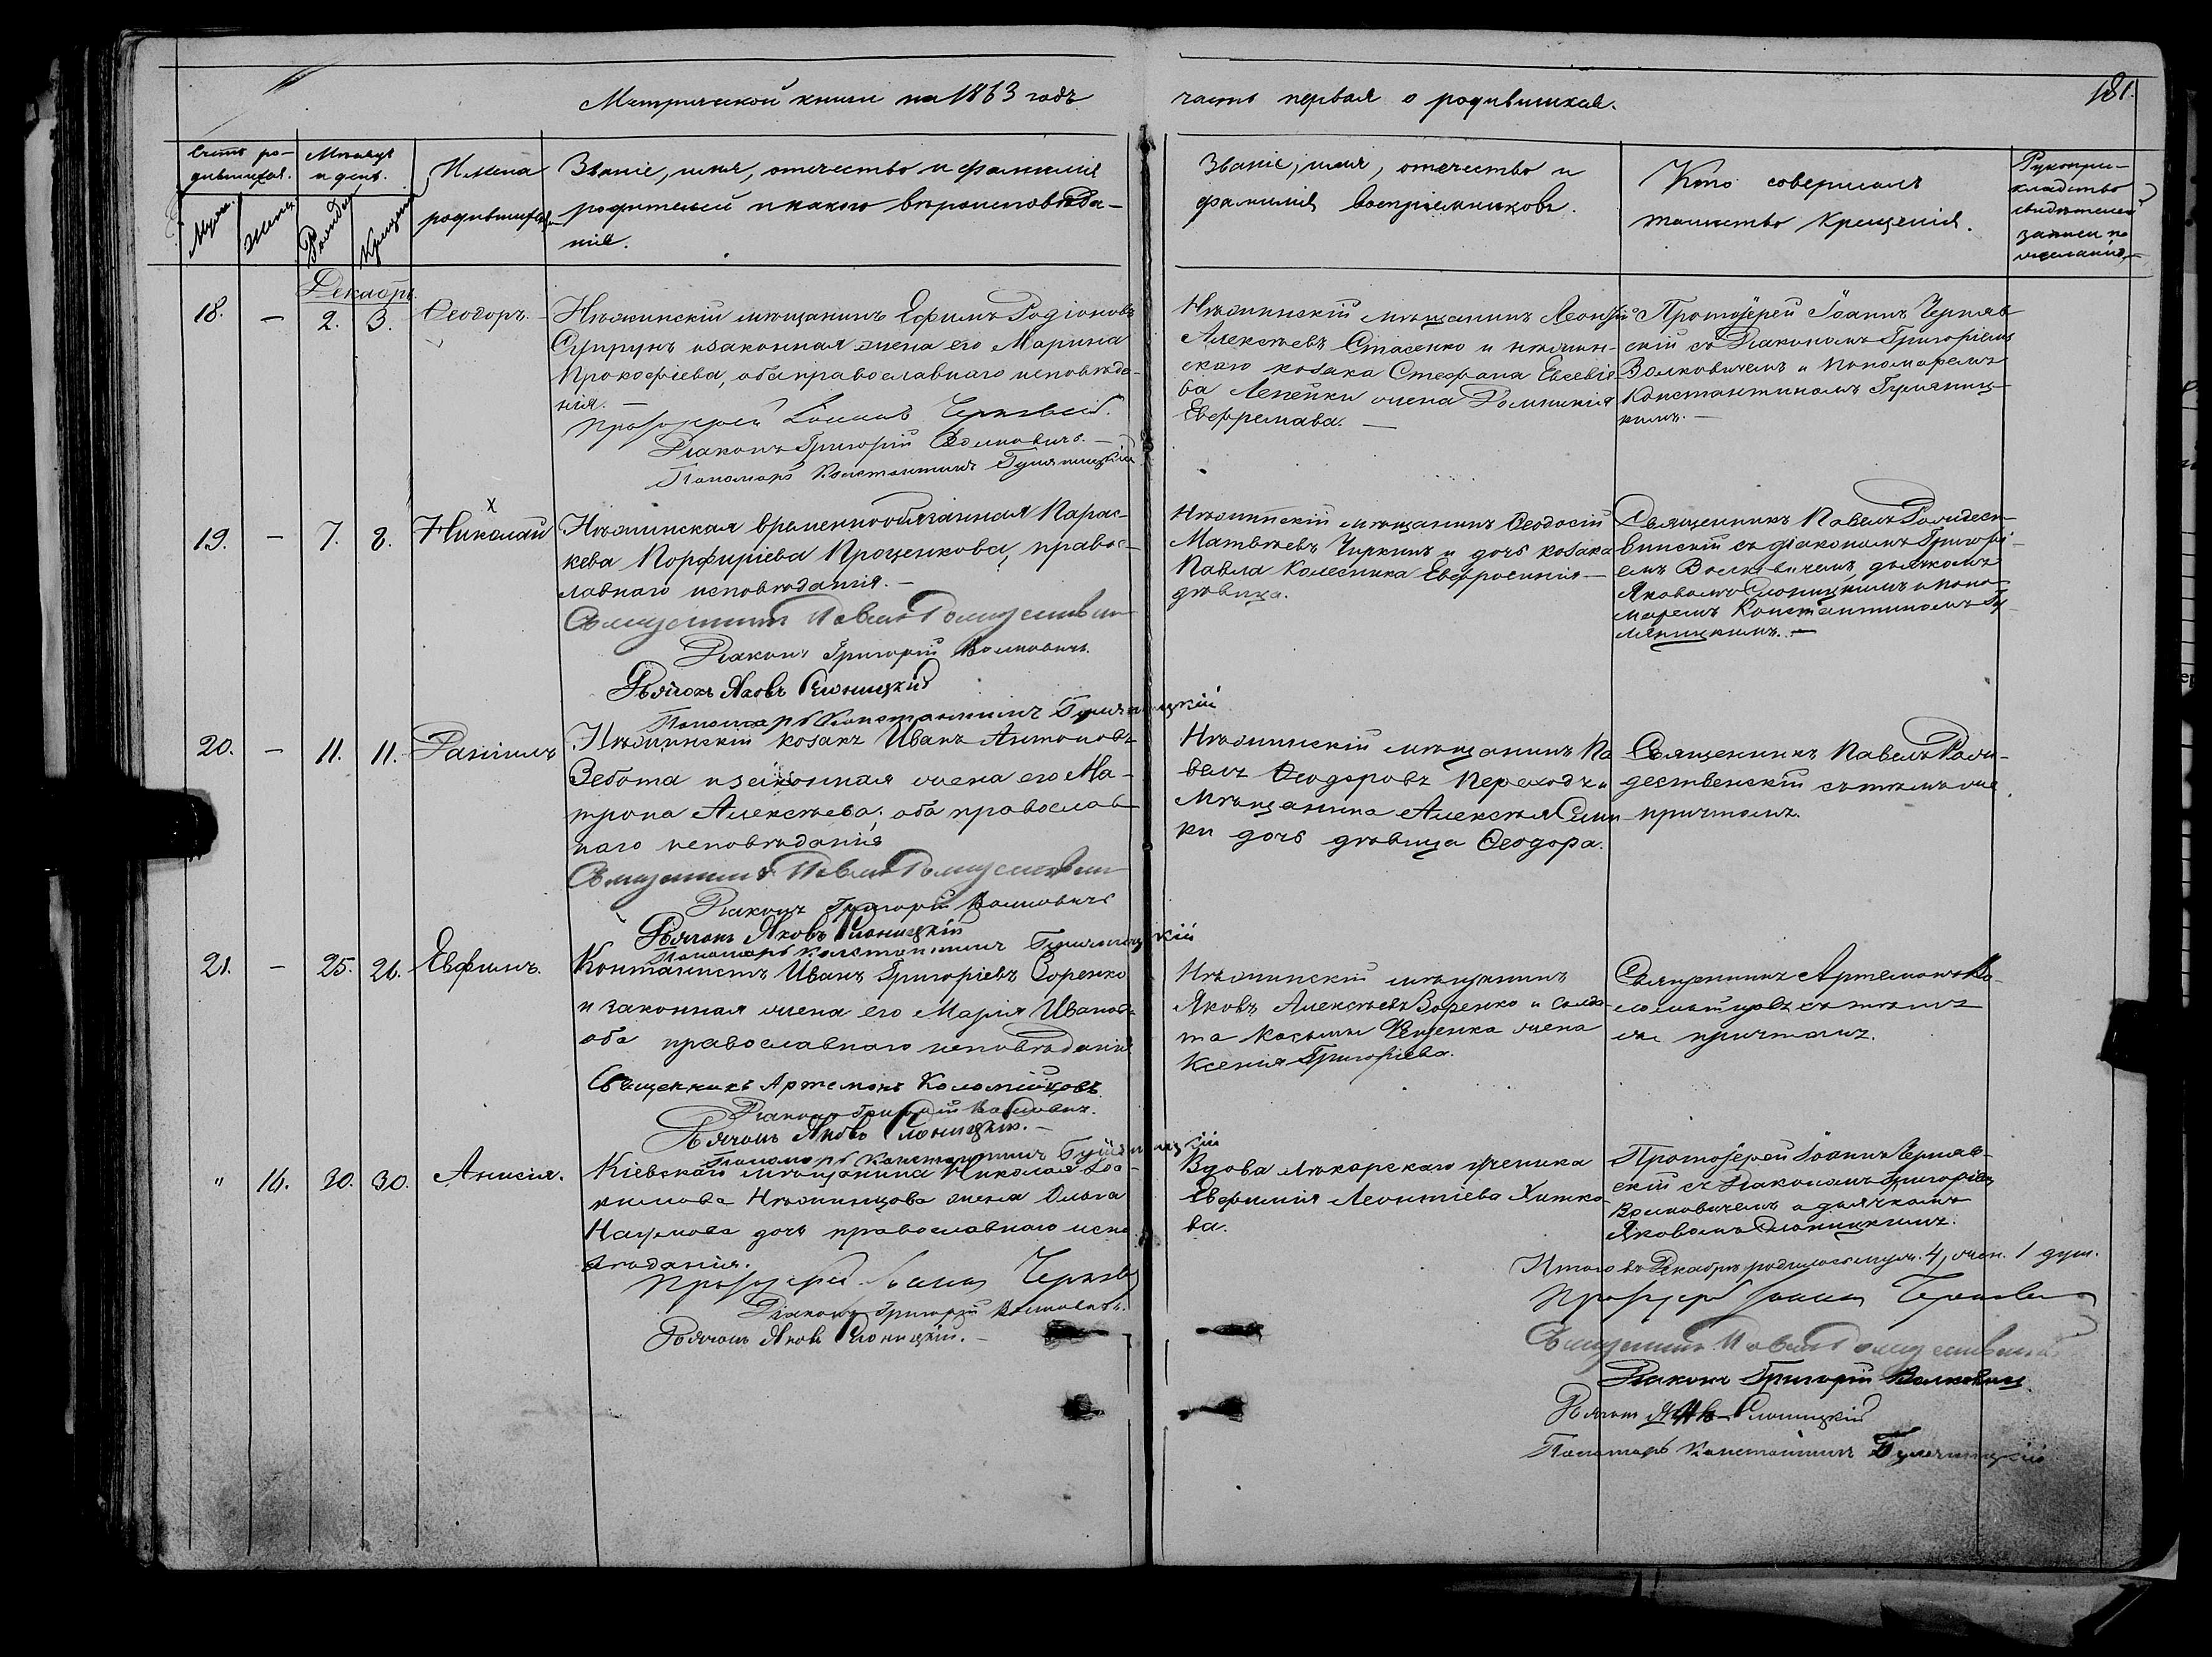 Метрической книги на 1863 годъ
часть первая о родившихся.
181.
Счетъ ро-
дившихся.
Мѣсяцъ
и день.
Имена
родившихся
Званіе, имя, отчество и фамилія
родителей и какого вѣроисповѣда-
нія.
Званіе, имя, отчество и
фамилія восприемниковъ.
Кто совершалъ
таинство крещенія.
Рукопри-
кладство
свидѣтелей
записи по
желанію.
Муж.
Жен.
Рожден.
Крещен.
Декабрь.
18. — 2. 3. Ѳеодоръ.
Нѣжинскій мѣщанинъ Ефимъ Родіоновъ
Супрунъ и законная жена его Марина
Прокофіева, оба православнаго исповѣда-
нія. —
Протоіерей Іоаннъ Чернявскій.
Діаконъ Григорій Волковичъ. —
Пономарь Константинъ
Нѣжинскій мѣщанинъ Леонтій
Алексѣевъ Стасенко и нѣжин-
скаго козака Стефана Евсевіе-
ва Лепейки жена Домникія
Евфремава. —
Протоіерей Іоаннъ Черняв-
скій съ Діакономъ Григоріемъ
Волковичемъ и Пономаремъ
Константиномъ
кимъ. —
19. — 7. 8. Николай
Нѣжинская временнообязанная Парас-
кева Порфиріева Проценкова, правос-
лавнаго исповѣданія. —
Священникъ Павелъ Рождественскій
Діаконъ Григорій Волковичъ.
Дьячокъ Яковъ Слоницкій
Пономарь Константинъ
Нѣжинскій мѣщанинъ Ѳеодосій
Матвѣевъ Чиркинъ и дочь козака
Павла Колесника Евфросинія —
дѣвица.
Священникъ Павелъ Рождест-
винскій съ діакономъ Григорі-
емъ Волковичемъ, дьячкомъ
Яковомъ Слоницкимъ и поно-
маремъ Константиномъ
20. — 11. 11. Даніилъ
Нѣжинскій козакъ Иванъ Антоновъ
Зебота и законная жена его Ма-
трона Алексѣева; оба православ-
наго исповѣданія
Священникъ Павелъ Рождественскій
Діаконъ Григорій Волковичъ
Дьячокъ Яковъ Слоницкій
Пономарь Константинъ
Нѣжинскій мѣщанинъ Па
велъ Ѳеодоровъ Переходъ и
Мѣщанина Алексѣя
ки дочь дѣвица Ѳеодора.
Священникъ Павелъ Рож-
дественскій съ тѣмъ же
причтомъ.
21. — 25. 26. Евфимъ.
Контанистъ Иванъ Григоріевъ Зоренко
и законная жена его Марія Иванова
оба православнаго исповѣданія
Священникъ Артемонъ Коломійцовъ.
Діаконъ Григорій Волковичъ.
Дьячокъ Яковъ Слоницкій. —
Пономарь Константинъ
Нѣжинскій мѣщанинъ
Яковъ Алексѣевъ Зоренко и солда-
та Косьмы жена
Ксенія Григоріева.
Священникъ Артемонъ Ко-
ломійцовъ съ тѣмъ
же причтомъ.
" 16. 30. 30. Анисія.
Кіевскаго мѣщанина Николая
Нѣжинцова жена Ольга
Наумова дочь православнаго испо-
вѣданія.
Протоіерей Іоаннъ Чернявскій
Діаконъ Григорій Волковичъ.
Дьячокъ Яковъ Слоницкій. —
Вдова лѣкарскаго ученика
Евфимія Леонтіева Хитко-
ва.
Протоіерей Іоаннъ Черняв-
скій съ Діакономъ Григоріемъ
Волковичемъ и дьячкомъ
Яковомъ Слоницкимъ.
Итого въ Декабрѣ родилось муж. 4, жен. 1 душ.
Протоіерей Іоаннъ Чернявскій
Священникъ Павелъ Рождественскій
Діаконъ Григорій Волковичъ
Дьячокъ Яковъ Слоницкій
Пономарь Константинъ